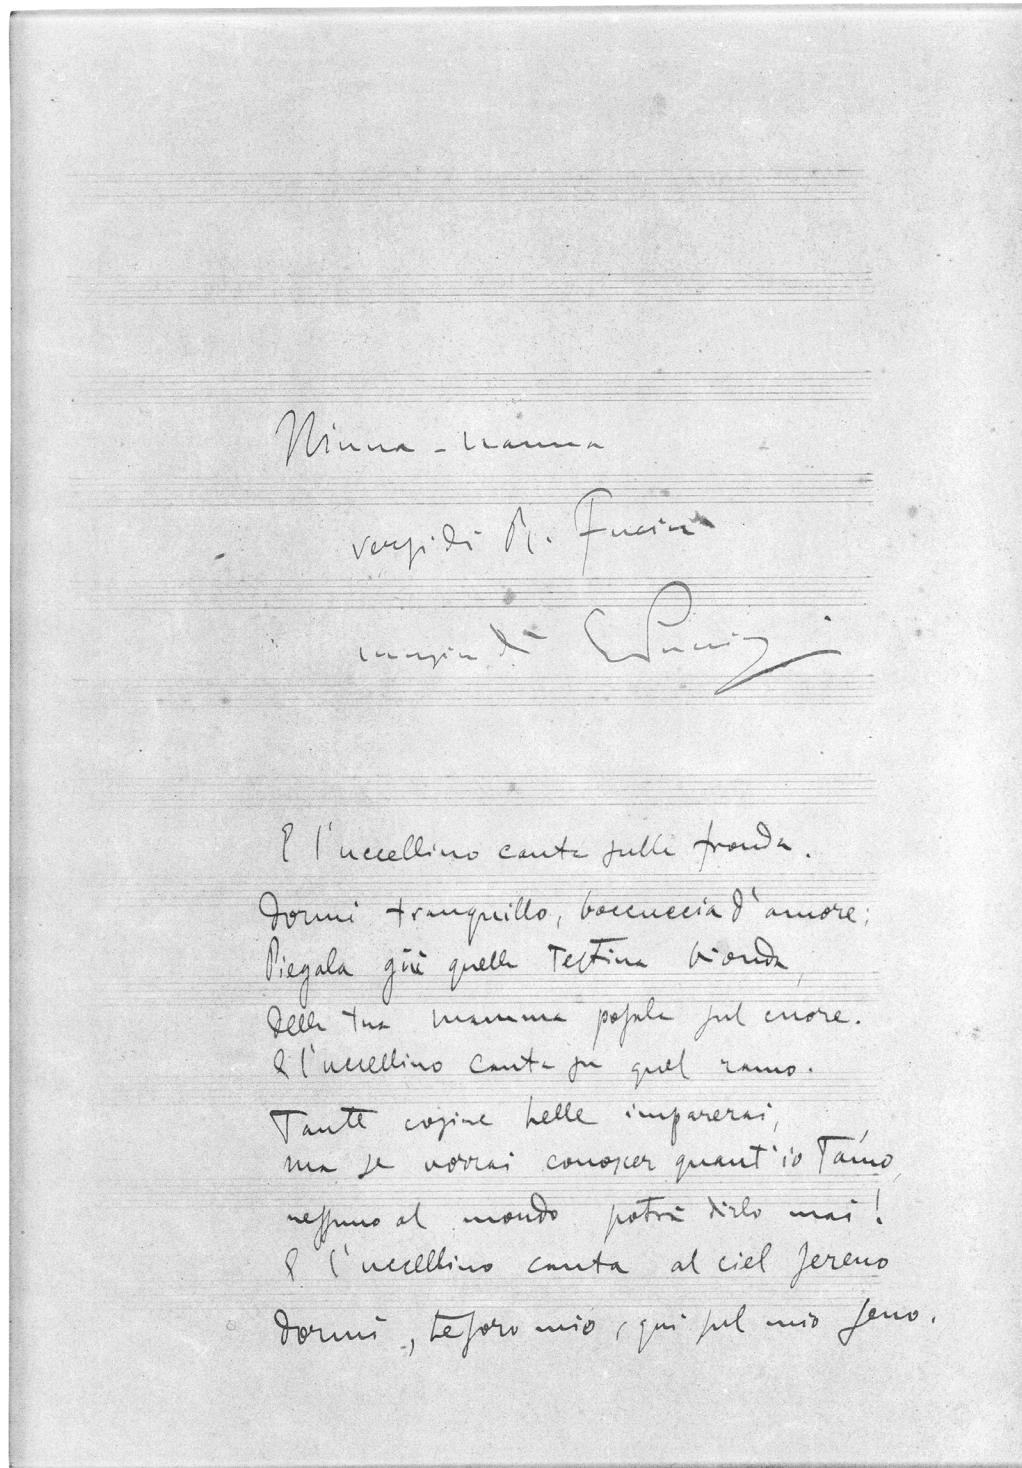 Ninna-nanna
versi di R. Fucini
musica di G Puccini
E l'uccellino canta sulla fronda.
Dormi tranquillo, boccuccia d'amore;
Piegala giù quella testina bionda,
Della tua mamma posala sul cuore.
E l'uccellino canta su quel ramo.
Tante cosine belle imparerai,
ma se vorrai conoscer quant'io t'amo,
nessuno al mondo potrà dirlo mai!
E l'uccellino canta al ciel sereno
Dormi, tesoro mio, qui sul mio seno.